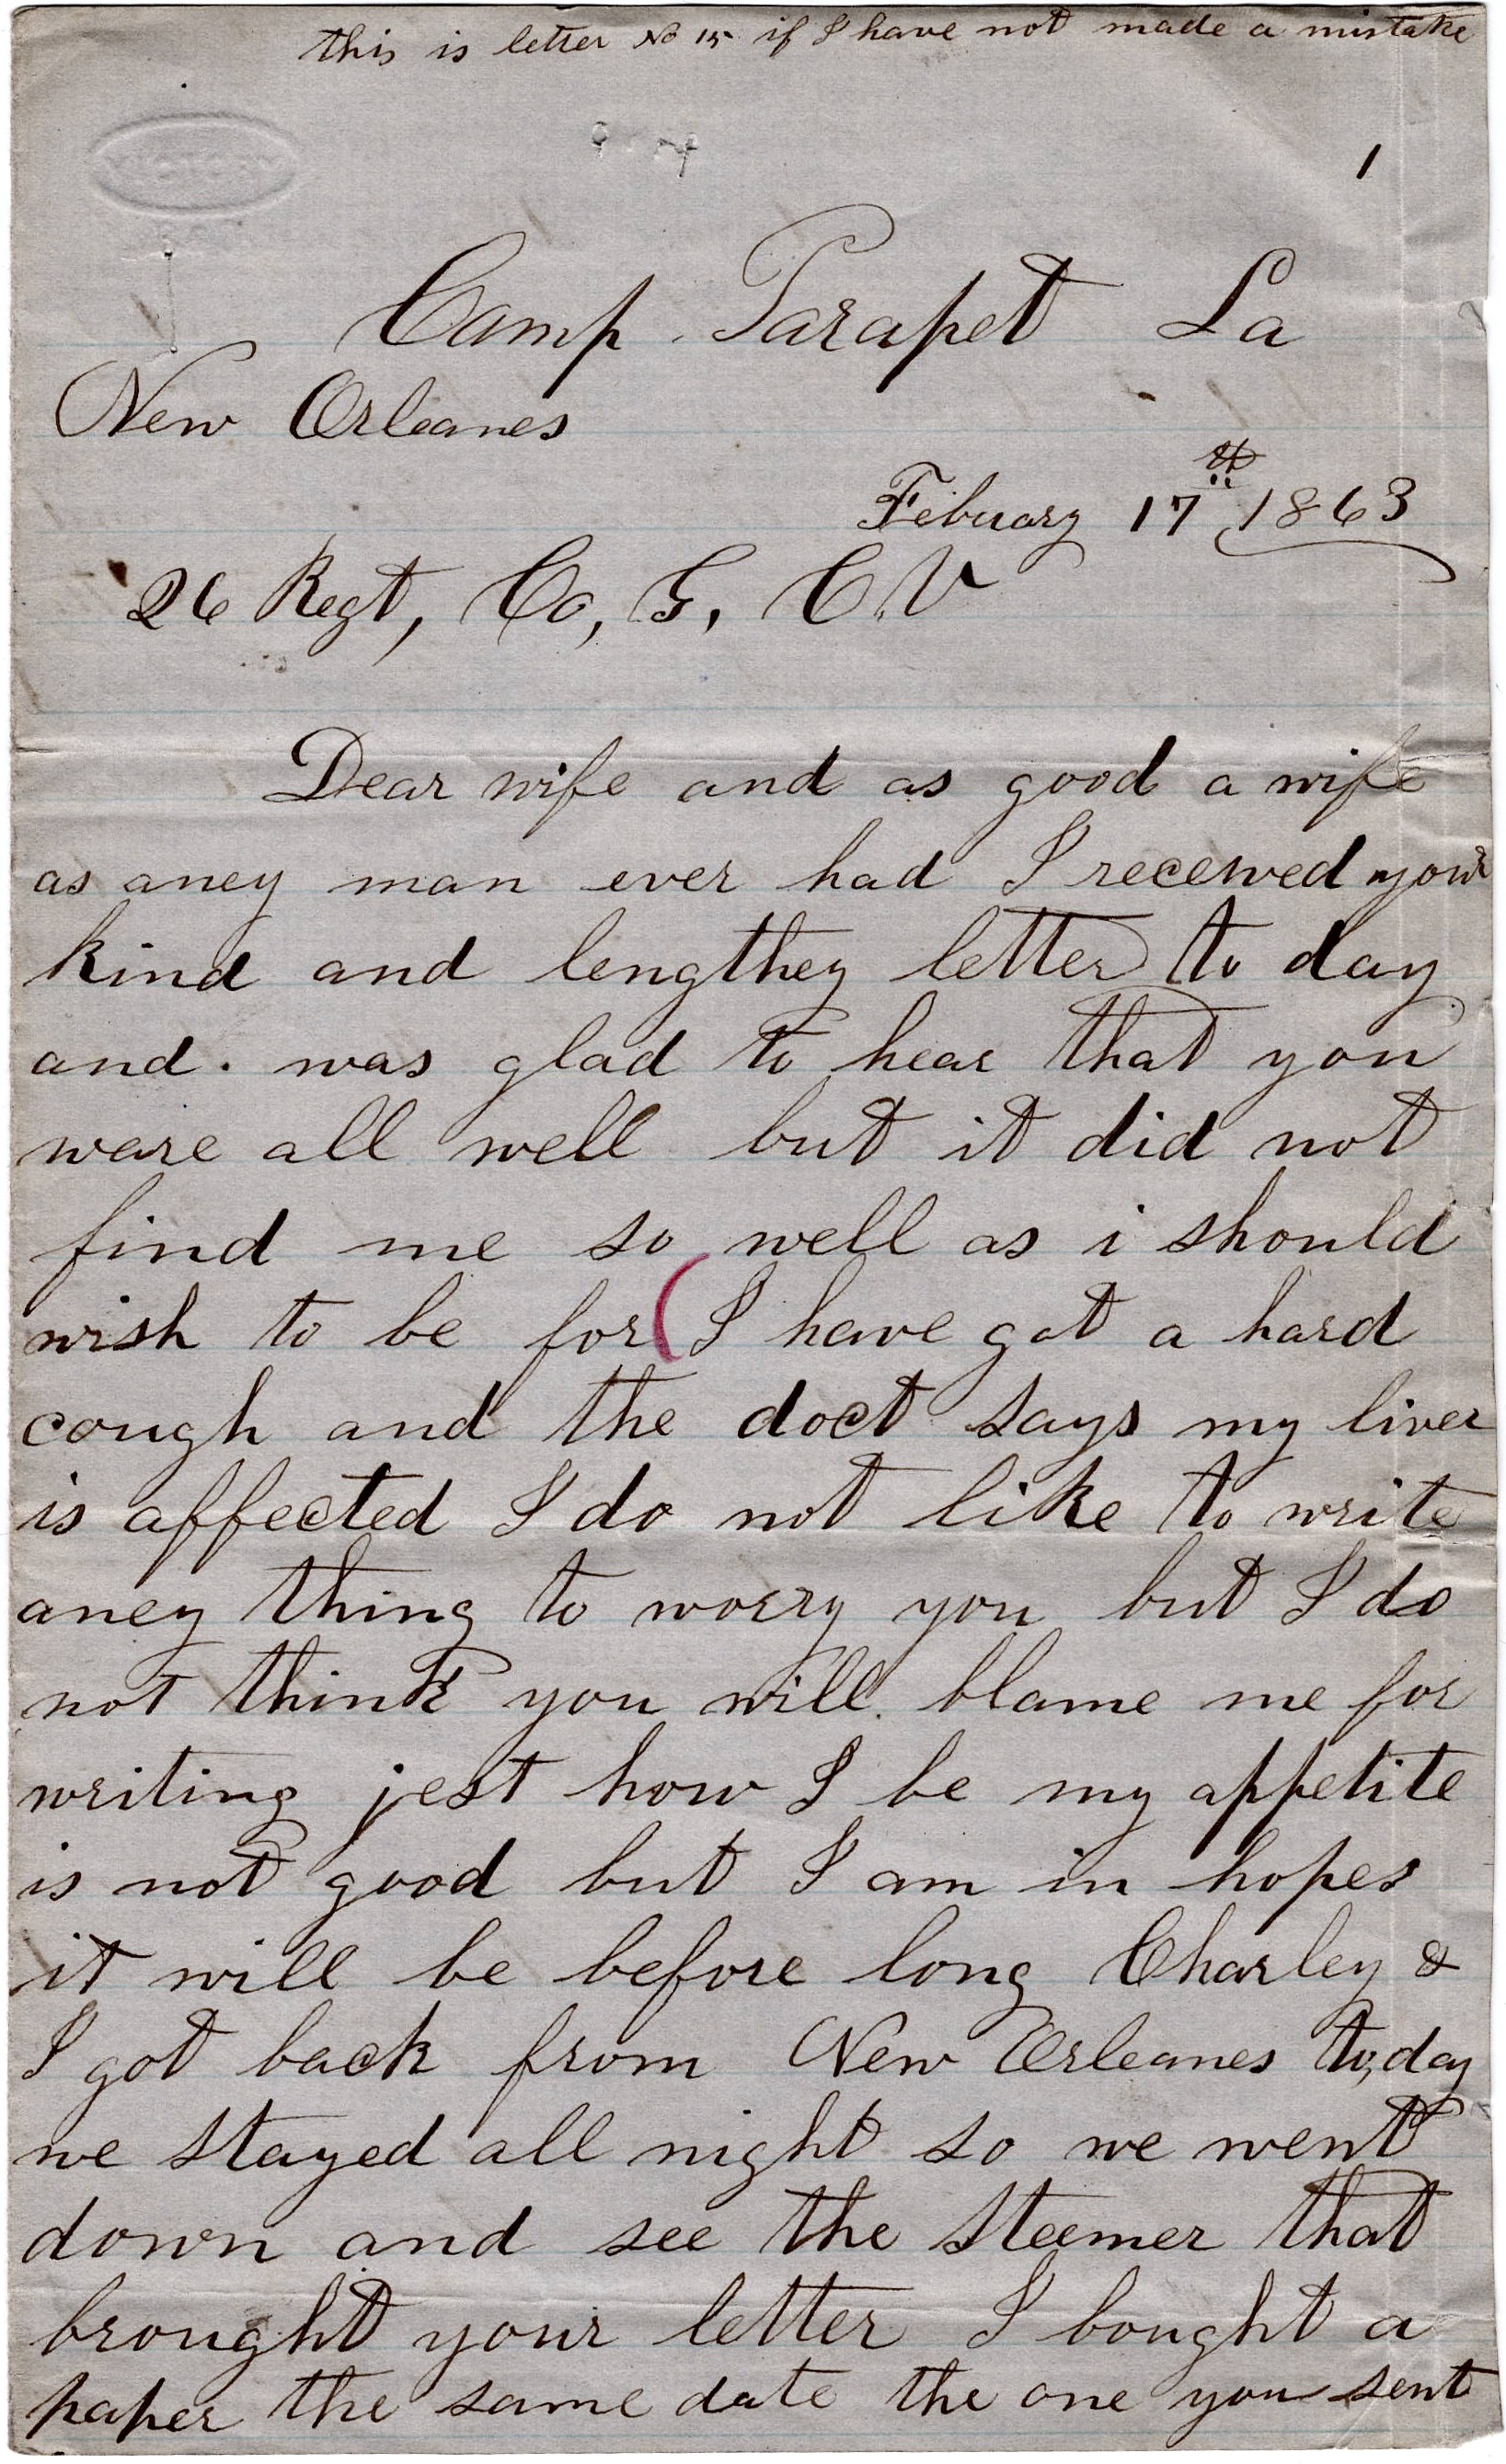 this is letter No 15 if I have not made a mistake
1
Camp Parapet La
New Orleanes
Febuary 17th 1863
26 Regt, Co, G, C.V
Dear wife and as good a wife
as aney man ever had I receiwed your
kind and lengthey letter to day
and. was glad to hear that you
ware all well but it did not
find me so well as i should
wish to be for (I have got a hard
cough and the doct says my liver
is affected I do not like to write
aney thing to worry you but I do
not think you will blame me for
writing jest how I be my appetite
is not good but I am in hopes
it will be before long Charley &
I got back from New Orleanes to,day
we stayed all night so we went
down and see the steemer that
brought your letter I bought a
paper the same date the one you sent